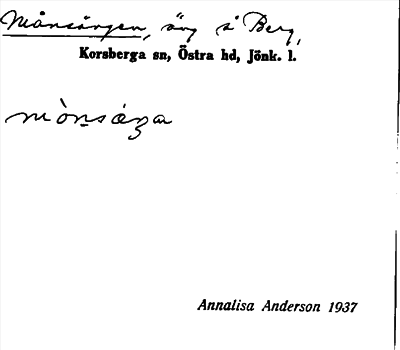 Månsängen, äng å Berg,
Korsberga sn, Östra hd, Jönk. l.
mònsáŋa
Annalisa Anderson 1937